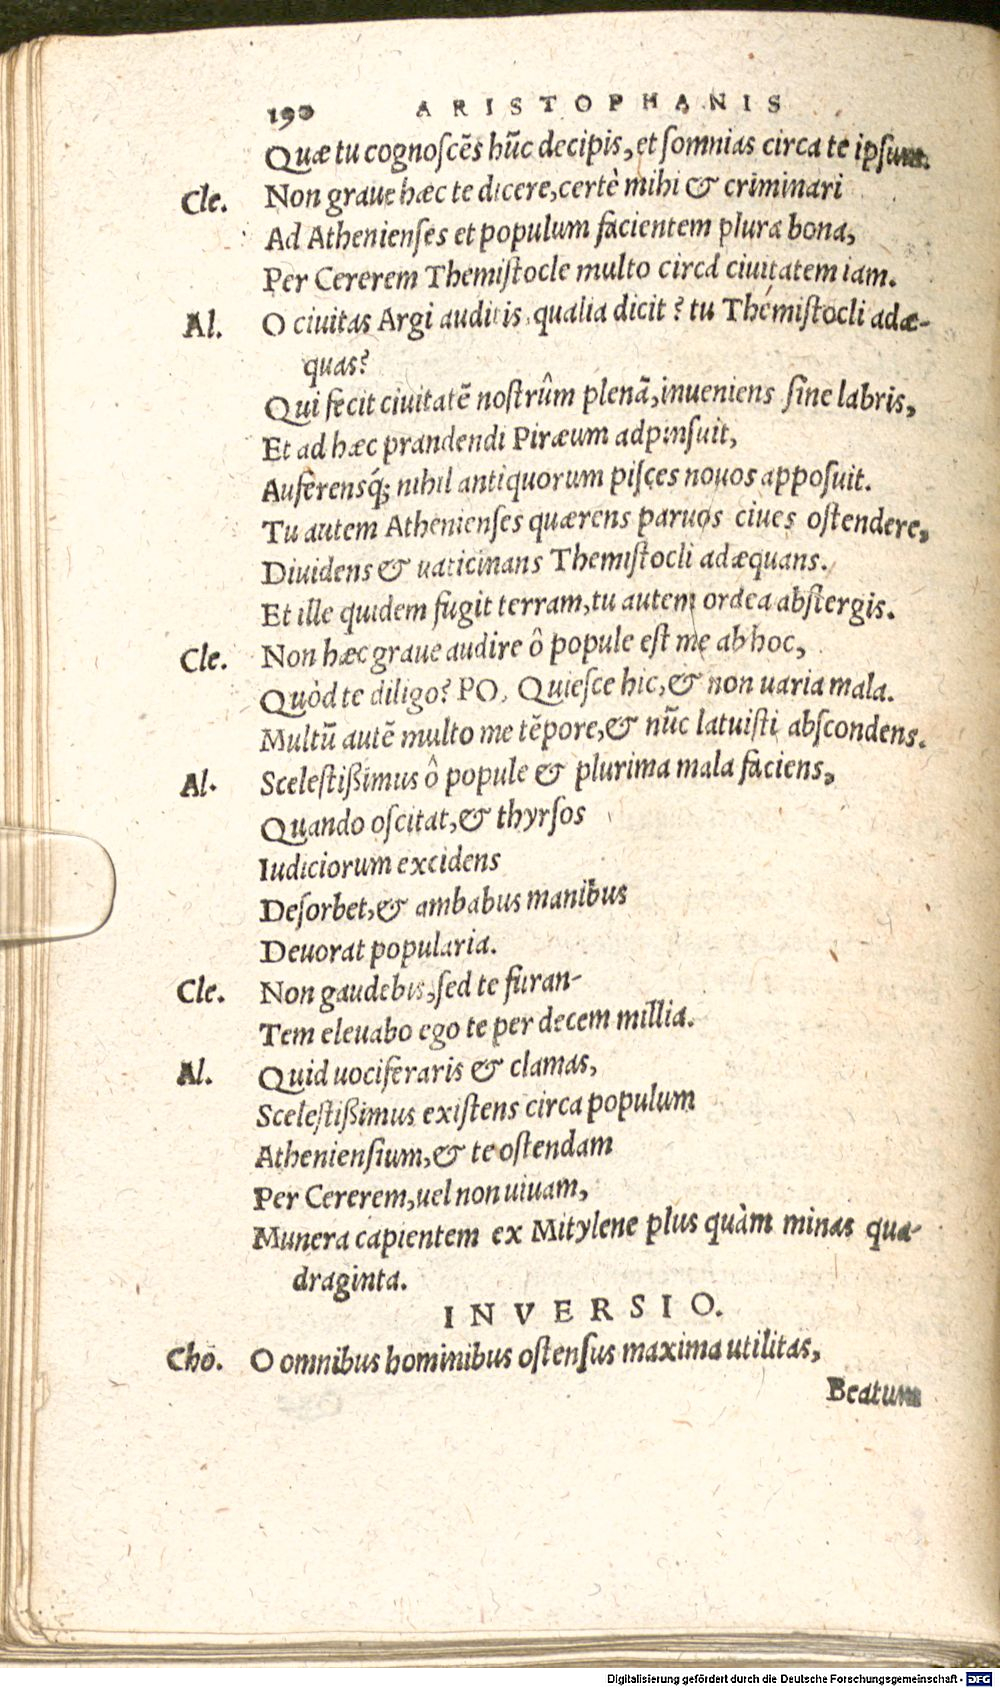 190 ARISTOPHANIS
Quæ tu cognoſcẽs hũc decipis, et ſomnias circa te ipſum.
Cle. Non graue hæc te dicere, certè mihi & criminari
Ad Athenienſes et populum facientem plura bona,
Per Cererem Themiſtocle multo circa ciuitatem iam.
Al. O ciuitas Argi auditis, qualia dicit? tu Themiſtocli adæ-
quas?
Qui fecit ciuitatẽ noſtrûm plenã, inueniens ſine labris,
Et ad hæc prandendi Piræum adpinſuit,
Auferensq́; nihil antiquorum piſces nouos appoſuit.
Tu autem Athenienſes quærens paruos ciues oſtendere,
Diuidens & uaticinans Themiſtocli adæquans.
Et ille quidem fugit terram, tu autem ordea abſtergis.
Cle. Non hæc graue audire ô popule eſt me ab hoc,
Quòd te diligo? PO. Quieſce hic, & non uaria mala.
Multũ autẽ multo me tẽpore, & nũc latuiſti abſcondens.
Al. Sceleſtißimus ô popule & plurima mala faciens,
Quando oſcitat, & thyrſos
Iudiciorum excidens
Deſorbet, & ambabus manibus
Deuorat popularia.
Cle. Non gaudebis, ſed te furan-
Tem eleuabo ego te per decem millia.
Al. Quid uociferaris & clamas,
Sceleſtißimus exiſtens circa populum
Athenienſium, & te oſtendam
Per Cererem, uel non uiuam,
Munera capientem ex Mitylene plus quàm minas qua-
draginta.
INVERSIO.
Cho. O omnibus hominibus oſtenſus maxima utilitas,
Beatum
Digitalisierung gefördert durch die Deutsche Forschungsgemeinschaft - DFG